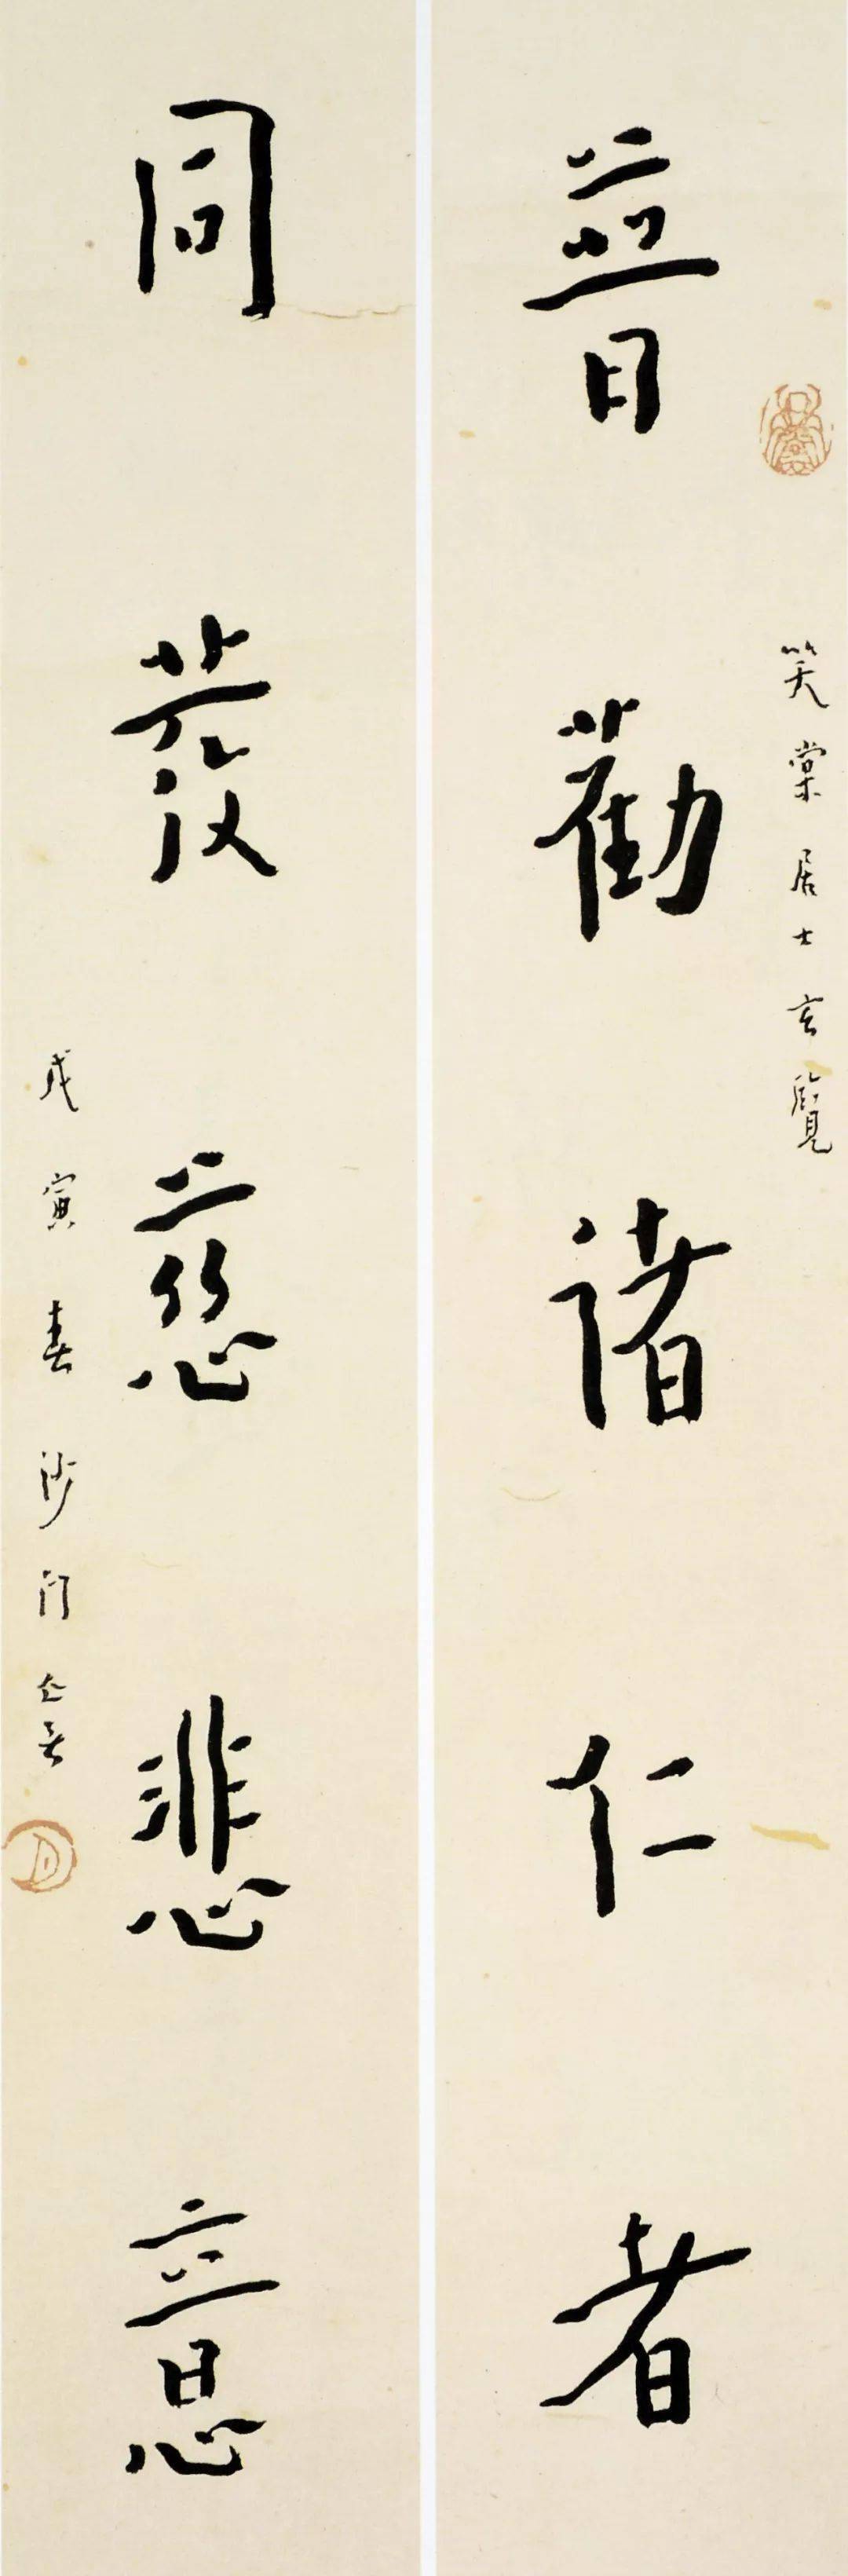 笑棠居士玄覽
普勸諸仁者
同發慈悲意
戊寅春沙門亾言